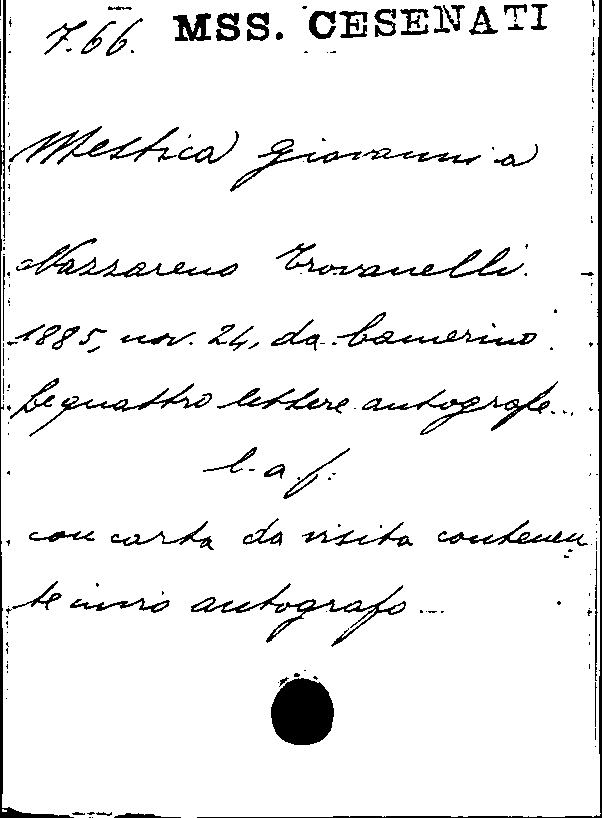 7.66. MSS. CESENATI
Mestica Giovanni a
Nazzareno Trovanelli.
1885, nov. 24, da Camerino.
Le quattro lettere autografe...
l. a. f.
con carta da visita contenen
te invio autografo